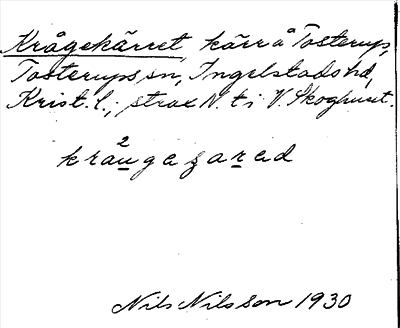 Krågekärret, kärr å Tosterup,
Tosterups sn, Ingelstads hd,
Krist. l.; strax N. t i V. Skoghuset.
Nils Nilsson 1930